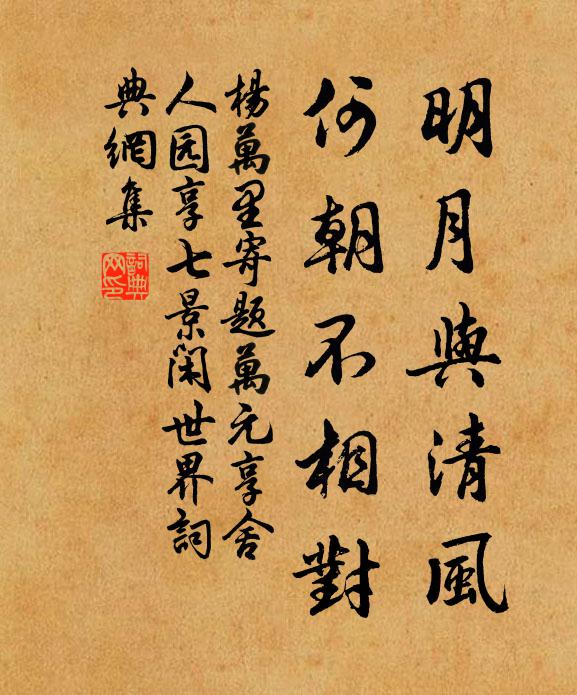 明月與清風
何朝不相對
楊萬里寄題萬元享舍
人园享七景闲世界詞
典網集
詞典网印